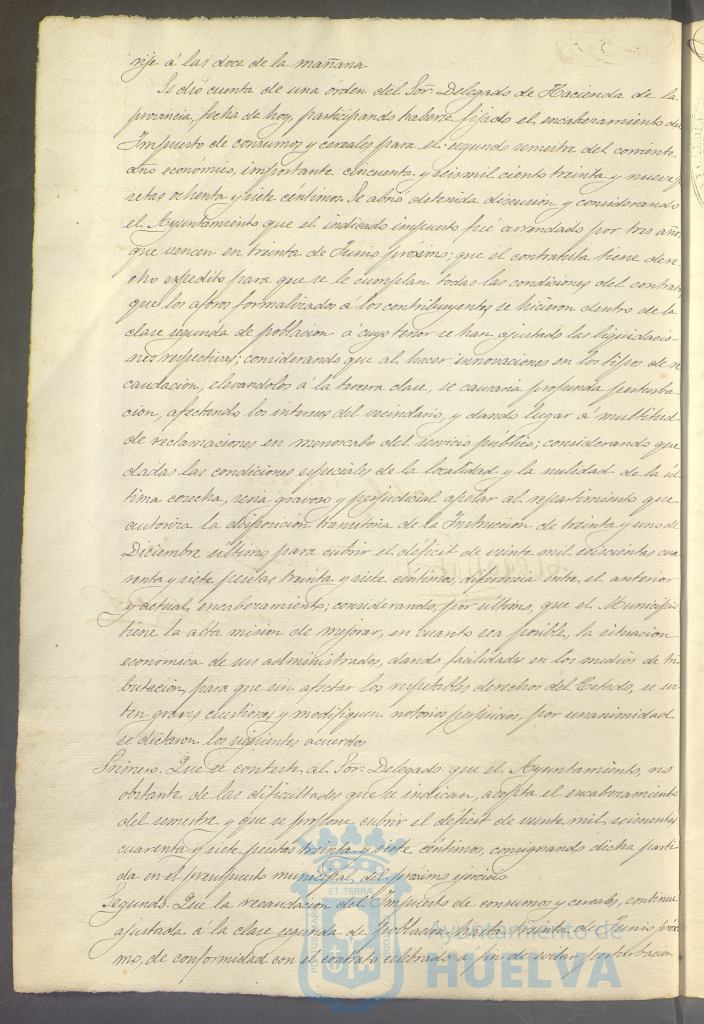 rife á las doce de la mañana
Se dió cuenta de una órden del Sor. Delegado de Hacienda de la
provincia, fecha de hoy, participando haberse fijado el encabezamiento del
Impuesto de consumos y cereales para el segundo semestre del corriente
año económico, importante cincuenta y seis mil ciento treinta y nueve pe
setas ochenta y siete céntimos. Se abrió detenida discusion y considerando
el Ayuntamiento que el indicado impuesto fué arrendado por tres años
que vencen en treinta de Junio próximo; que el contratista tiene dere-
cho expedito para que se le cumplan todas las condiciones del contrato,
que los aforos formalizados á los contribuyentes se hicieron dentro de la
clase segunda de poblacion á cuyo tenor se han ajustado las liquidacio-
nes respectivas; considerando que al hacer innovaciones en los tipos de re
caudacion, elevandolos á la tercera clase, se causaria profunda perturba-
cion, afectando los intereses del vecindario, y dando lugar á multitud
de reclamaciones en menoscabo del servicio público; considerando que
dadas las condiciones especiales de la localidad y la nulidad de la úl-
tima cosecha, seria gravoso y perjudicial apelar al repartimiento que
autoriza la disposicion transitoria de la Instruccion de treinta y uno de
Diciembre último para cubrir el déficit de veinte mil seiscientas cua
renta y siete pesetas treinta y siete céntimos, diferencia entre el anterior
y actual encabezamiento; considerando, por último, que el Municipio
tiene la alta mision de mejorar, en cuanto sea posible, la situacion
económica de sus administrados, dando facilidades en los medios de tri
butacion, para que sin afectar los respetables derechos del Estado, se evi
ten graves cuestiones y modifiquen notorios perjuicios, por unanimidad
se dictaron los siguientes acuerdos
Primero. Que se conteste al Sor. Delegado que el Ayuntamiento, no
obstante de las dificultades que se indican, acepta el encabezamiento
del semestre y que se propone cubrir el déficit de veinte mil seiscientas
cuarenta y siete pesetas treinta y siete céntimos, consignando dicha parti-
da en el presupuesto municipal del próximo ejercicio
Segundo. Que la recaudacion del Impuesto de consumos y cereales, continue
ajustada á la clase segunda de poblacion hasta treinta de Junio próxi
mo, de conformidad con el contrato celebrado á fin de evitar perturbacion
PORTUS MARIS
ET TERRÆ
CUSTODIA
Ayuntamiento de
HUELVA